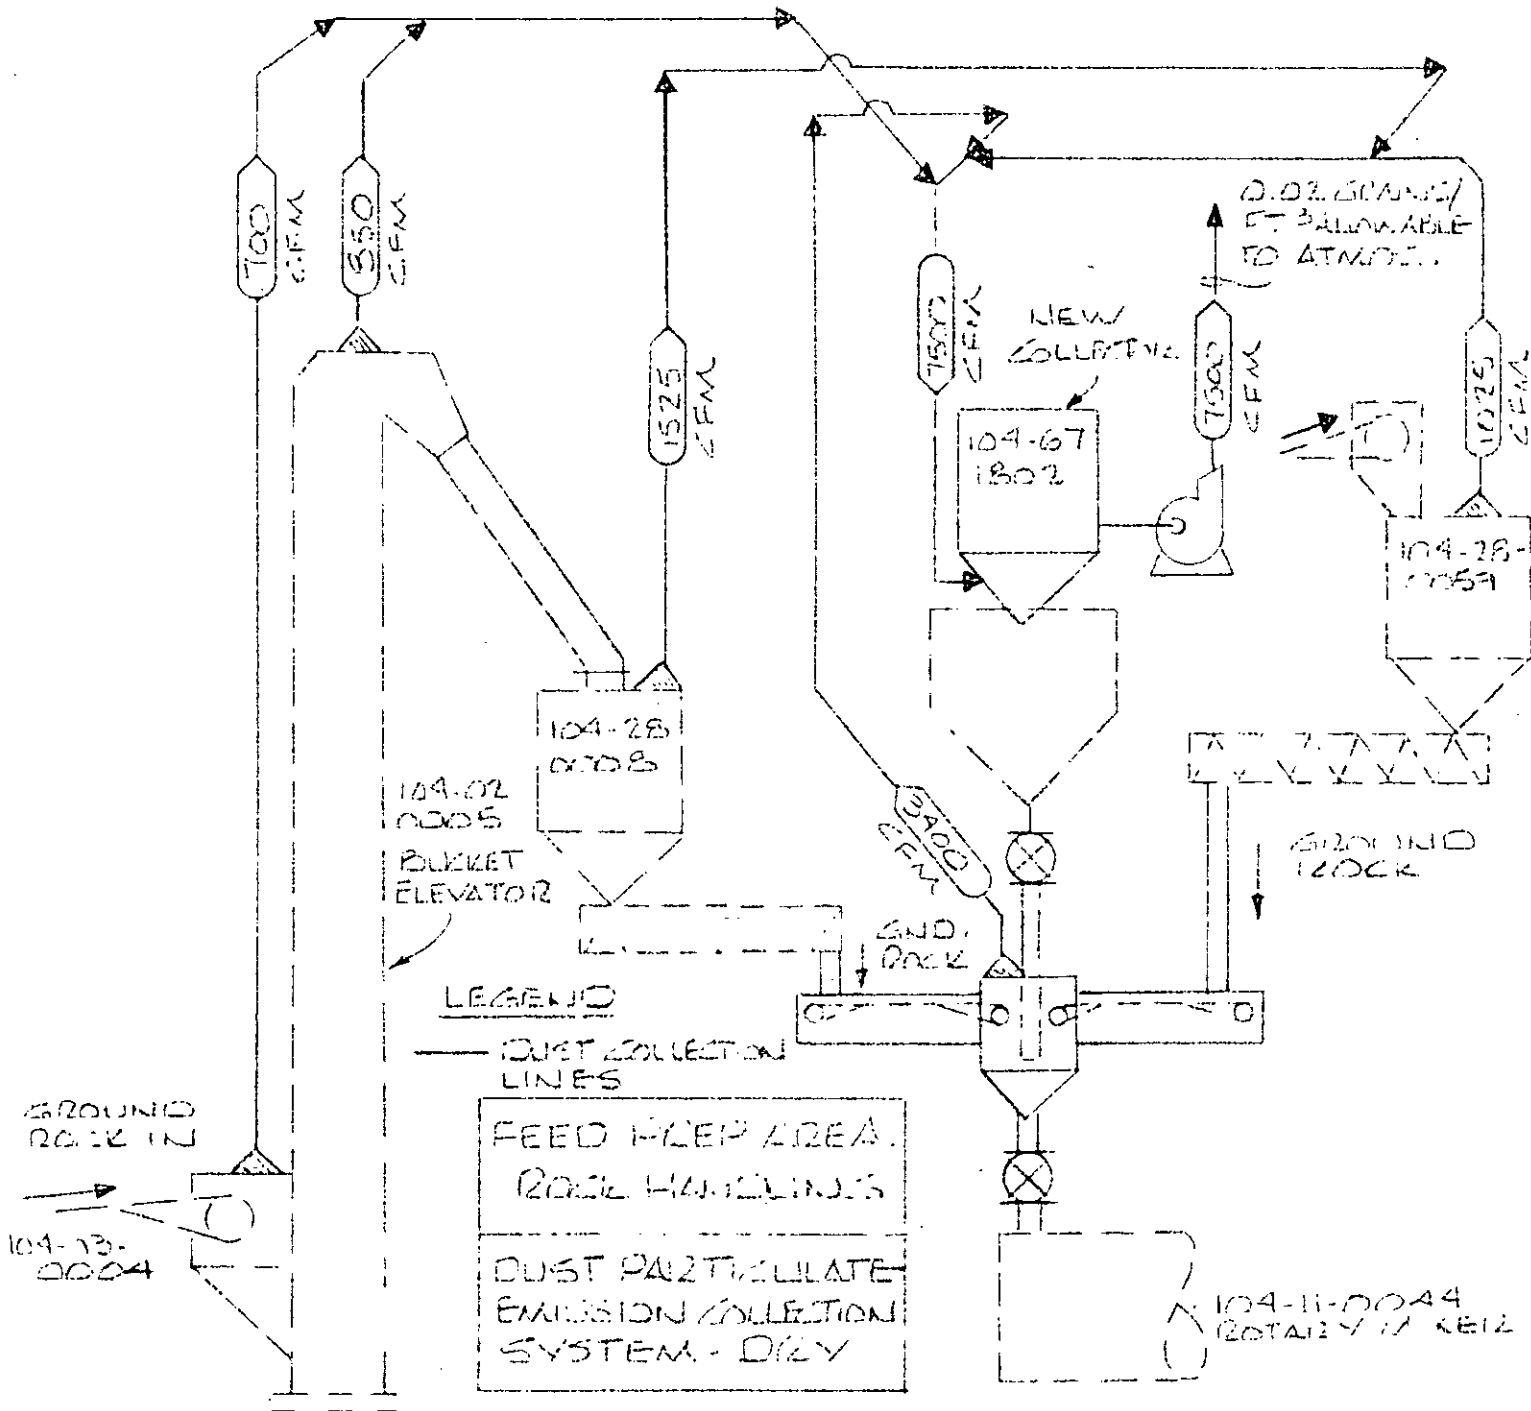 700
CFM
CFM
1525
CFM
7500
CFM
0.02 GRAINS/
FT.³ ALLOWABLE
TO ATMOS.
NEW
COLLECTOR
7500
CFM
CFM
104-67
1802
104-28-
104-28
0008
104-02
0005
BUKKET
ELEVATOR
3400
CFM
GROUND
ROCK
GND.
ROCK
LEGEND
DUST COLLECTION
LINES
GROUND
ROCK IN
104-13-
0004
FEED PREP AREA.
ROCK HANDLING
DUST PARTICULATE
EMISSION COLLECTION
SYSTEM - DRY
104-11-0044
ROTARY